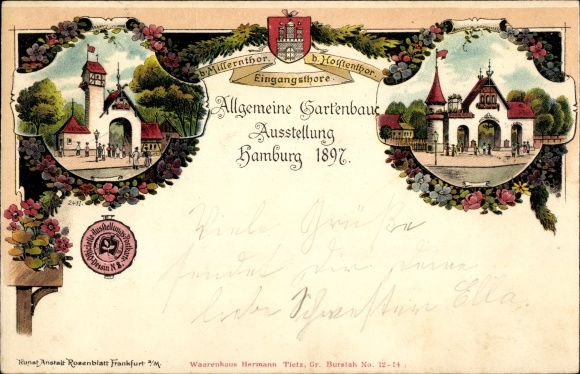 b. Millernthor.
b. Holstenthor.
Eingangsthore.
Allgemeine Gartenbau-
Ausstellung
Hamburg 1897.
2412.
Viele Grüße
sendet dir deine
liebe Schwester Ella.
Kunst Anstalt Rosenblatt Frankfurt a/M.
Waarenhaus Hermann Tietz, Gr. Burstah No. 12-14